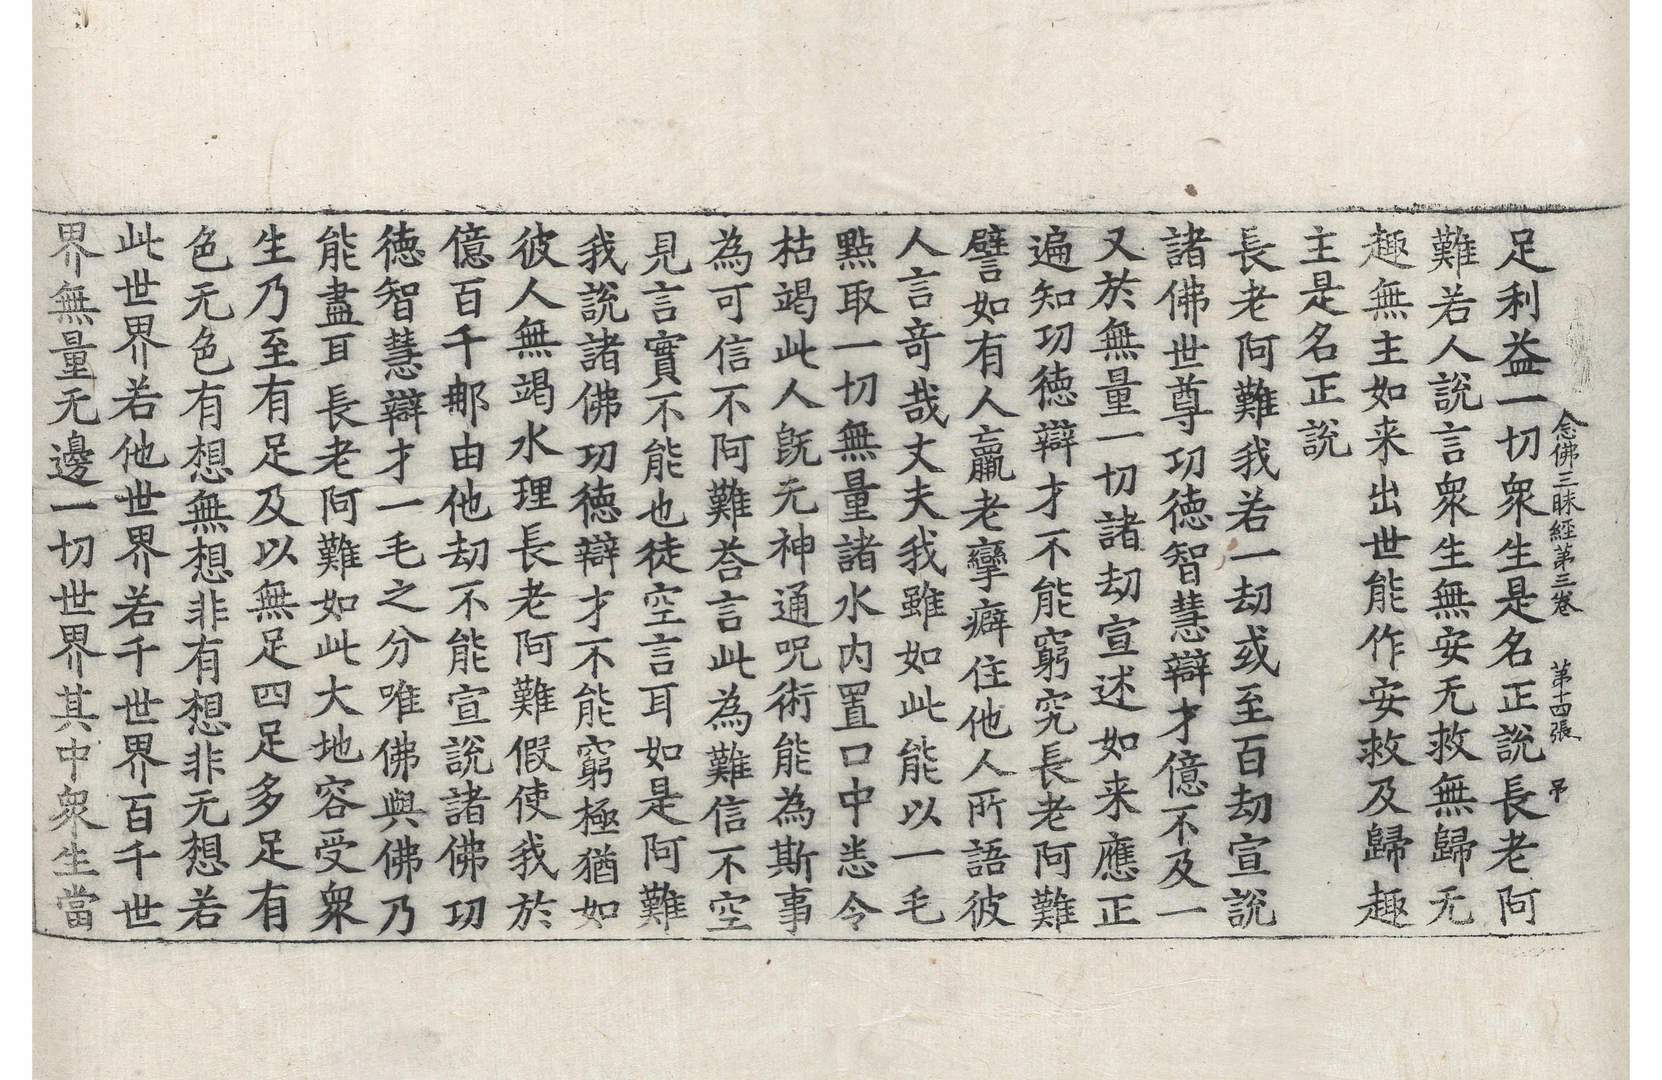 念佛三昧經第三卷　第十四張　弔
足利益一切衆生是名正說長老阿
難若人說言衆生無安无救無歸无
趣無主如来出世能作安救及歸趣
主是名正說
長老阿難我若一劫或至百劫宣說
諸佛世尊功德智慧辯才億不及一
又於無量一切諸劫宣述如来應正
遍知功德辯才不能窮究長老阿難
譬如有人羸老攣癖住他人所語彼
人言竒哉丈夫我雖如此能以一毛
點取一切無量諸水内置口中悉令
枯竭此人旣无神通呪術能為斯事
為可信不阿難荅言此為難信不空
見言實不能也徒空言耳如是阿難
我說諸佛功德辯才不能窮極猶如
彼人無竭水理長老阿難假使我於
億百千那由他劫不能宣說諸佛功
德智慧辯才一毛之分唯佛與佛乃
能盡耳長老阿難如此大地容受衆
生乃至有足及以無足四足多足有
色无色有想無想非有想非无想若
此世界若他世界若千世界百千世
界無量无邊一切世界其中衆生當